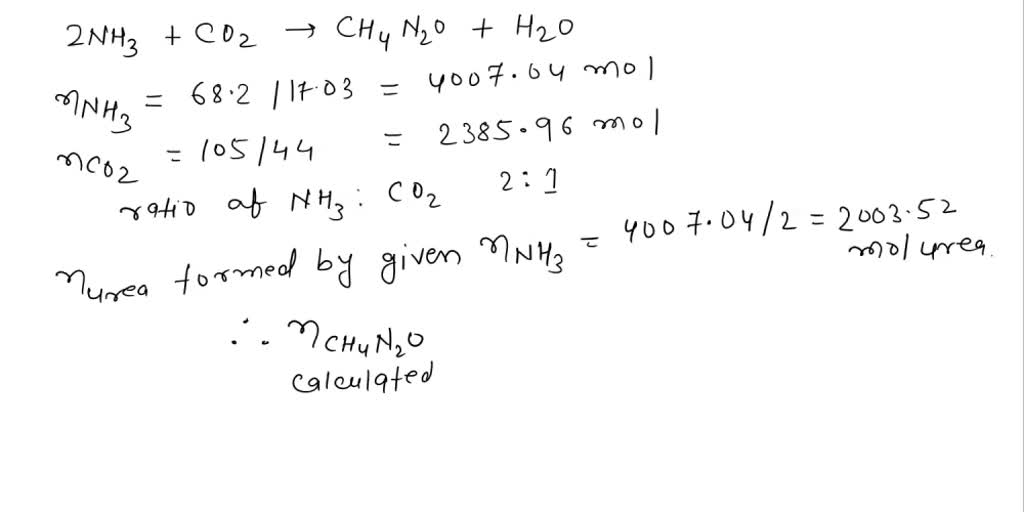 2NH3 + CO2 → CH4N2O + H2O
nNH3 = 68.2 / 17.03 = 4007.04 mol
nCO2 = 105/44 = 2385.96 mol
ratio of NH3 : CO2 2:1
nurea formed by given nNH3 = 4007.04/2 = 2003.52
mol urea.
∴ nCH4N2O
calculated